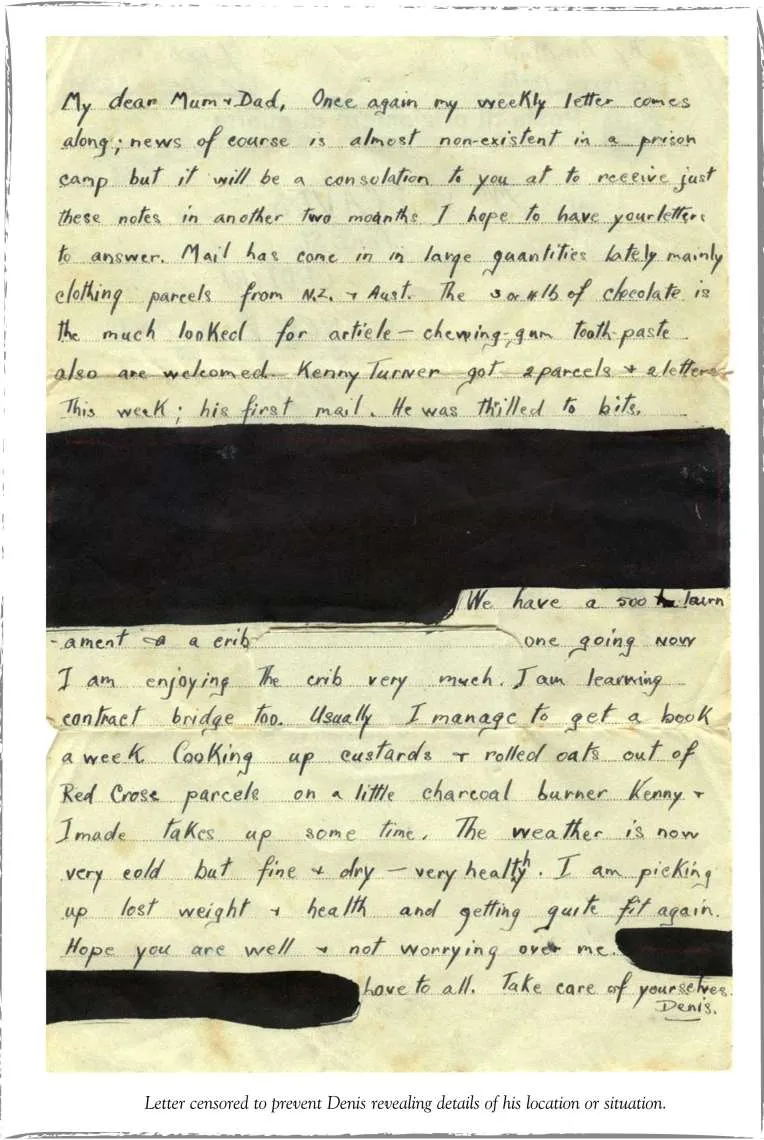 My dear Mum + Dad, Once again my weekly letter comes
along; news of course is almost non-existent in a prison
camp but it will be a consolation to you at to receive just
these notes in another two moanths I hope to have your letters
to answer. Mail has come in in large quantities lately mainly
clothing parcels from N.Z. + Aust. The 3 or 4 lb of chocolate is
the much looked for article — chewing-gum tooth-paste
also are welcomed. Kenny Turner got 2 parcels + 2 letters
This week; his first mail. He was thrilled to bits.
We have a 500 tourn
-ament a crib
one going now
I am enjoying the crib very much. I am learning
contract bridge too. Usually I manage to get a book
a week. Cooking up custards + rolled oats out of
Red Cross parcels on a little charcoal burner Kenny +
I made takes up some time. The weather is now
very cold but fine + dry — very healthy. I am picking
up lost weight + health and getting quite fit again.
Hope you are well + not worrying over me.
Love to all. Take care of yourselves.
Denis.
Letter censored to prevent Denis revealing details of his location or situation.